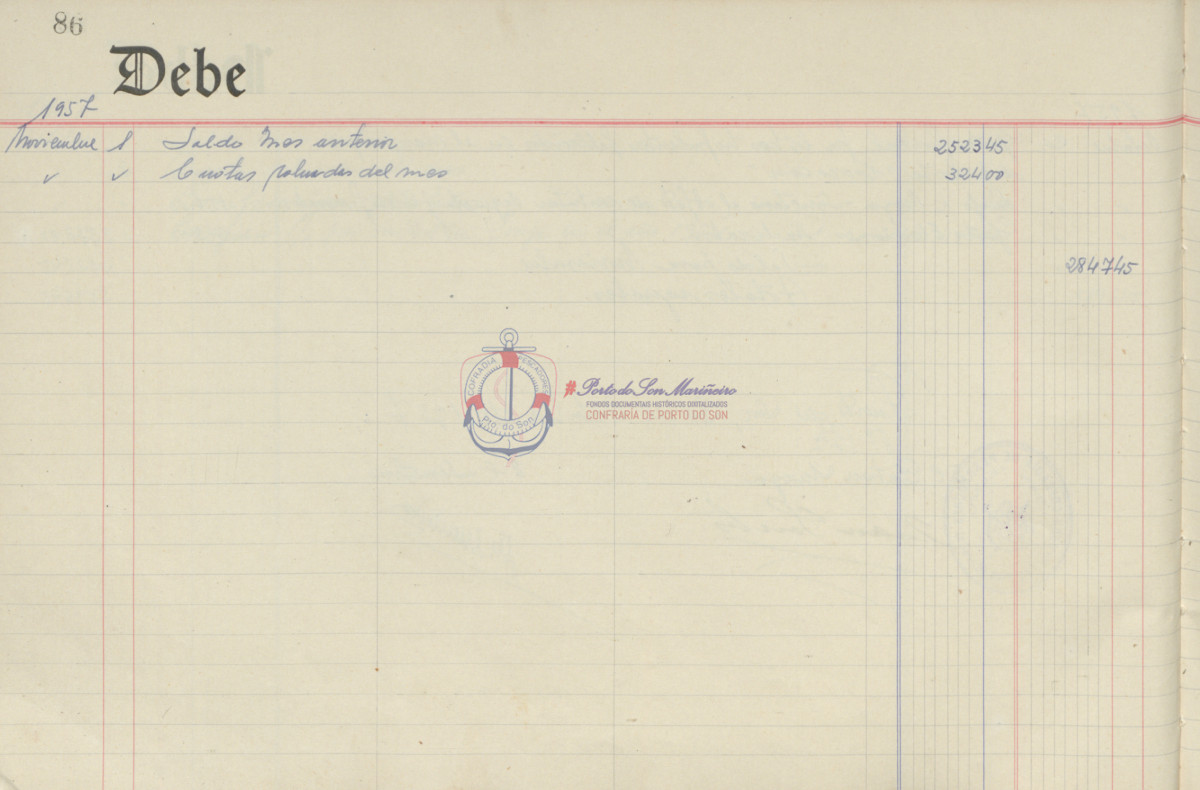 86
Debe
1957
Noviembre 1 Saldo Mes anterior 2523 45
✓ ✓ Cuotas del mes 324 00
2847 45
COFRADIA PESCADORES
Pto. do Son
#Porto do Son Mariñeiro
FONDOS DOCUMENTAIS HISTÓRICOS DIXITALIZADOS
CONFRARÍA DE PORTO DO SON